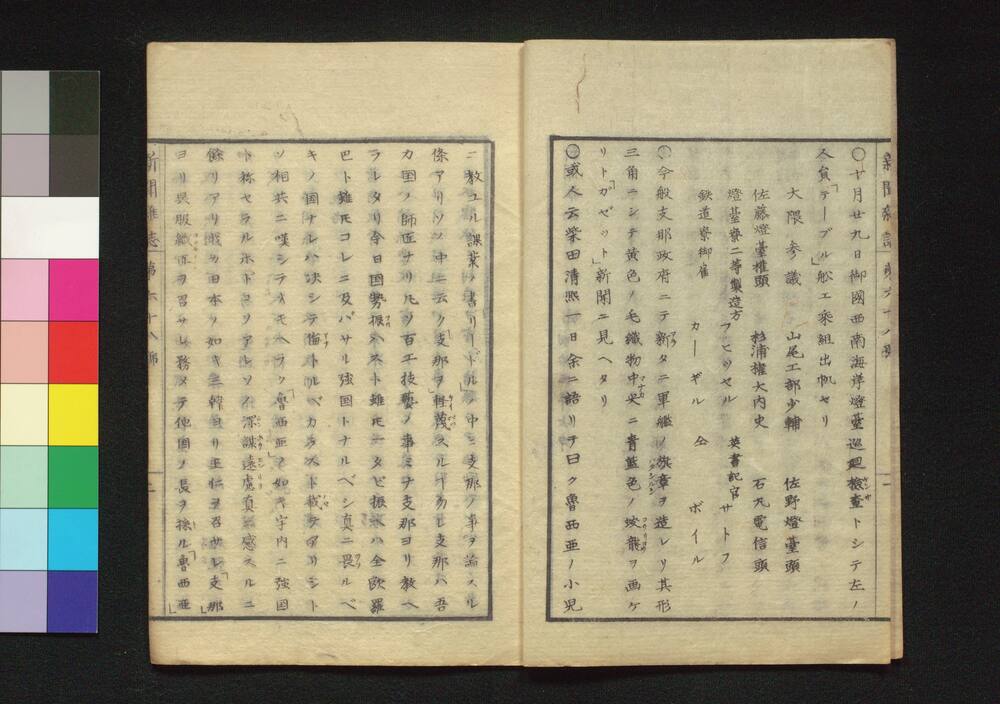 新聞雑誌 第六十八號
○十月廿九日御國西南海岸燈臺巡廻檢査トシテ左ノ
人員「テーブル」舩エ乘組出帆セリ
大隈參議 山尾工部少輔 佐野燈臺頭
佐藤燈臺權頭 杉浦權大内史 石丸電信頭
燈臺寮二等製造方 フヒッセル 英書記官 サトフ
鉄道寮御雇 カーギル 仝 ボイル
○今般支那政府ニテ新タニ軍艦ノ旗章ヲ造レリ其形
三角ニシテ黄色ノ毛織物中央ニ青藍色ノ蛟龍ヲ画ケ
リト「ガゼット」新聞ニ見ヘタリ
○或人云柴田清熈一日余ニ語リテ曰ク魯西亜ノ小児
ニ教ユル課業ノ書「リードル」ノ中ニ支那ノ事ヲ論スル
條アリソノ中ニ云ク「支那ヲ輕蔑スル勿レ支那ハ吾
カ国ノ師匠ナリ凡ソ百工技藝ノ事ミナ支那ヨリ教ヘ
ラレタリ今日国勢振ハスト雖モ一タビ振ハハ全欧羅
巴ト雖モコレニ及バサル強国トナルベシ真ニ畏ルベ
キノ国ナレハ決シテ侮トルベカラスト載テアリシト
ソ相共ニ嘆シテイヘラク「魯西亜ノ如キ宇内ニ強国
ト称セラルホドコソアレソノ深謀遠慮真ニ感スルニ
餘リアリ我カ日本ノ如キ三韓ヨリ王仁ヲ召サレ「支那」
ヨリ呉服織匠ヲ召サレ務メテ他国ノ長ヲ採ル「魯西亜」
新聞雑誌 第六十八號 二